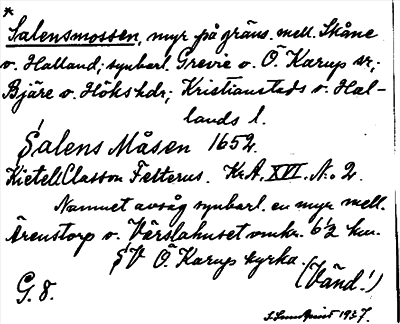 *
Salensmossen, myr på gräns. mell. Skåne
o. Halland; synbarl. Grevie o. Ö. Karup sr;
Bjäre o. Höks hdr; Kristianstads o. Hal-
lands l.
Salens Måsen 1652.
Kietell Classon Felterus. Kr.A. XVI. No. 2.
Namnet avsåg synbarl. en myr mell.
Ärenstorp o. Värslahuset omkr. 6 1/2 km.
SV Ö. Karup kyrka.
(Vänd!)
G. 8.
1937.